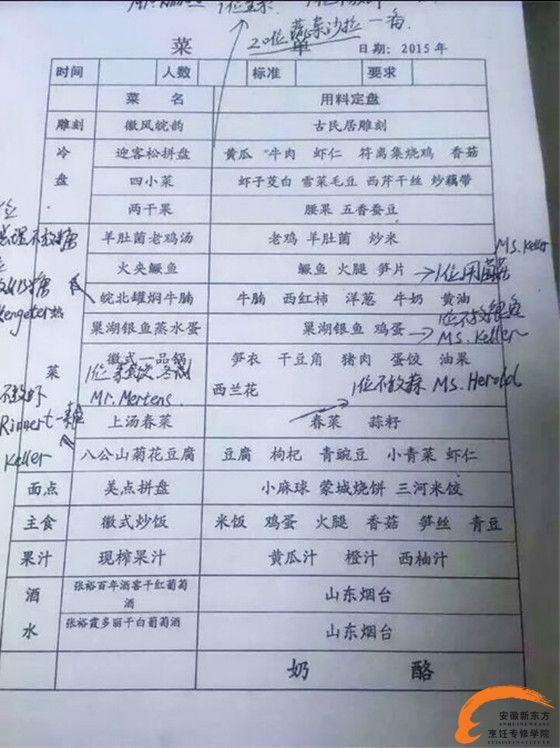 20位蔬菜沙拉一份
菜 单 日期: 2015年
时间 人数 标准 要求
菜 名 用料定盘
雕刻 徽风皖韵 古民居雕刻
冷盘 迎客松拼盘 黄瓜 牛肉 虾仁 符离集烧鸡 香菇
四小菜 虾子茭白 雪菜毛豆 西芹干丝 炒藕带
两干果 腰果 五香蚕豆
羊肚菌老鸡汤 老鸡 羊肚菌 炒米
Ms. Keller
火夹鳜鱼 鳜鱼 火腿 笋片
皖北罐焖牛腩 牛腩 西红柿 洋葱 牛奶 黄油
巢湖银鱼蒸水蛋 巢湖银鱼 鸡蛋
1位不放银鱼
Ms. Keller
菜 徽式一品锅 笋衣 干豆角 猪肉 蛋饺 油果
西兰花
Mr. Mertens
1位不放蒜 Ms. Herold
不放虾
Rinnert
Keller
上汤春菜 春菜 蒜籽
八公山菊花豆腐 豆腐 枸杞 青豌豆 小青菜 虾仁
面点 美点拼盘 小麻球 蒙城烧饼 三河米饺
主食 徽式炒饭 米饭 鸡蛋 火腿 香菇 笋丝 青豆
果汁 现榨果汁 黄瓜汁 橙汁 西柚汁
酒水 张裕百年酒窖干红葡萄酒 山东烟台
张裕霞多丽干白葡萄酒 山东烟台
奶 酪
安徽新东方
烹饪专修学院